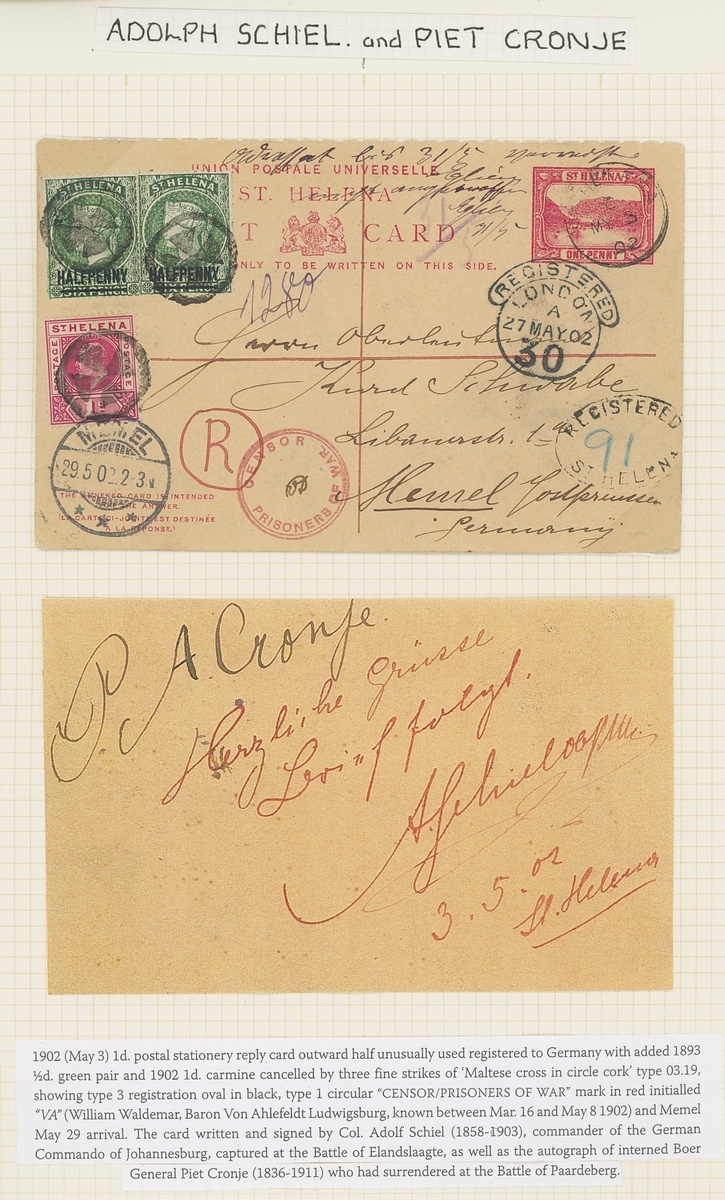 ADOLPH SCHIEL. and PIET CRONJE
bis 31/5
UNION POSTALE UNIVERSELLE
ST. HELENA
T CARD
ONLY TO BE WRITTEN ON THIS SIDE.
31/5
ST HELENA
HALFPENNY
SIX PENCE
ST HELENA
HALFPENNY
SIX PENCE
ST HELENA
ONE PENNY
MY 3
02
1280
REGISTERED
LONDON
A
27 MAY.02
30
ST HELENA
POSTAGE
POSTAGE
1d
Herrn Oberleutn
Kurd Schwabe
Libauerstr. 1
Memel Ostpreussen
Germany
MEMEL
29.5.02.2-3N
R
CENSOR
PRISONERS OF WAR
REGISTERED
91
ST HELENA
THE ANNEXED CARD IS INTENDED
THE ANSWER.
(LA CARTE CI-JOINTE EST DESTINÉE
A LA RÉPONSE.)
P. A. Cronje
Herzliche Grüsse
Brief folgt.
A. Schiel
3.5.02
St. Helena
1902 (May 3) 1d. postal stationery reply card outward half unusually used registered to Germany with added 1893
½d. green pair and 1902 1d. carmine cancelled by three fine strikes of ‘Maltese cross in circle cork’ type 03.19,
showing type 3 registration oval in black, type 1 circular “CENSOR/PRISONERS OF WAR” mark in red initialled
“VA” (William Waldemar, Baron Von Ahlefeldt Ludwigsburg, known between Mar. 16 and May 8 1902) and Memel
May 29 arrival. The card written and signed by Col. Adolf Schiel (1858-1903), commander of the German
Commando of Johannesburg, captured at the Battle of Elandslaagte, as well as the autograph of interned Boer
General Piet Cronje (1836-1911) who had surrendered at the Battle of Paardeberg.